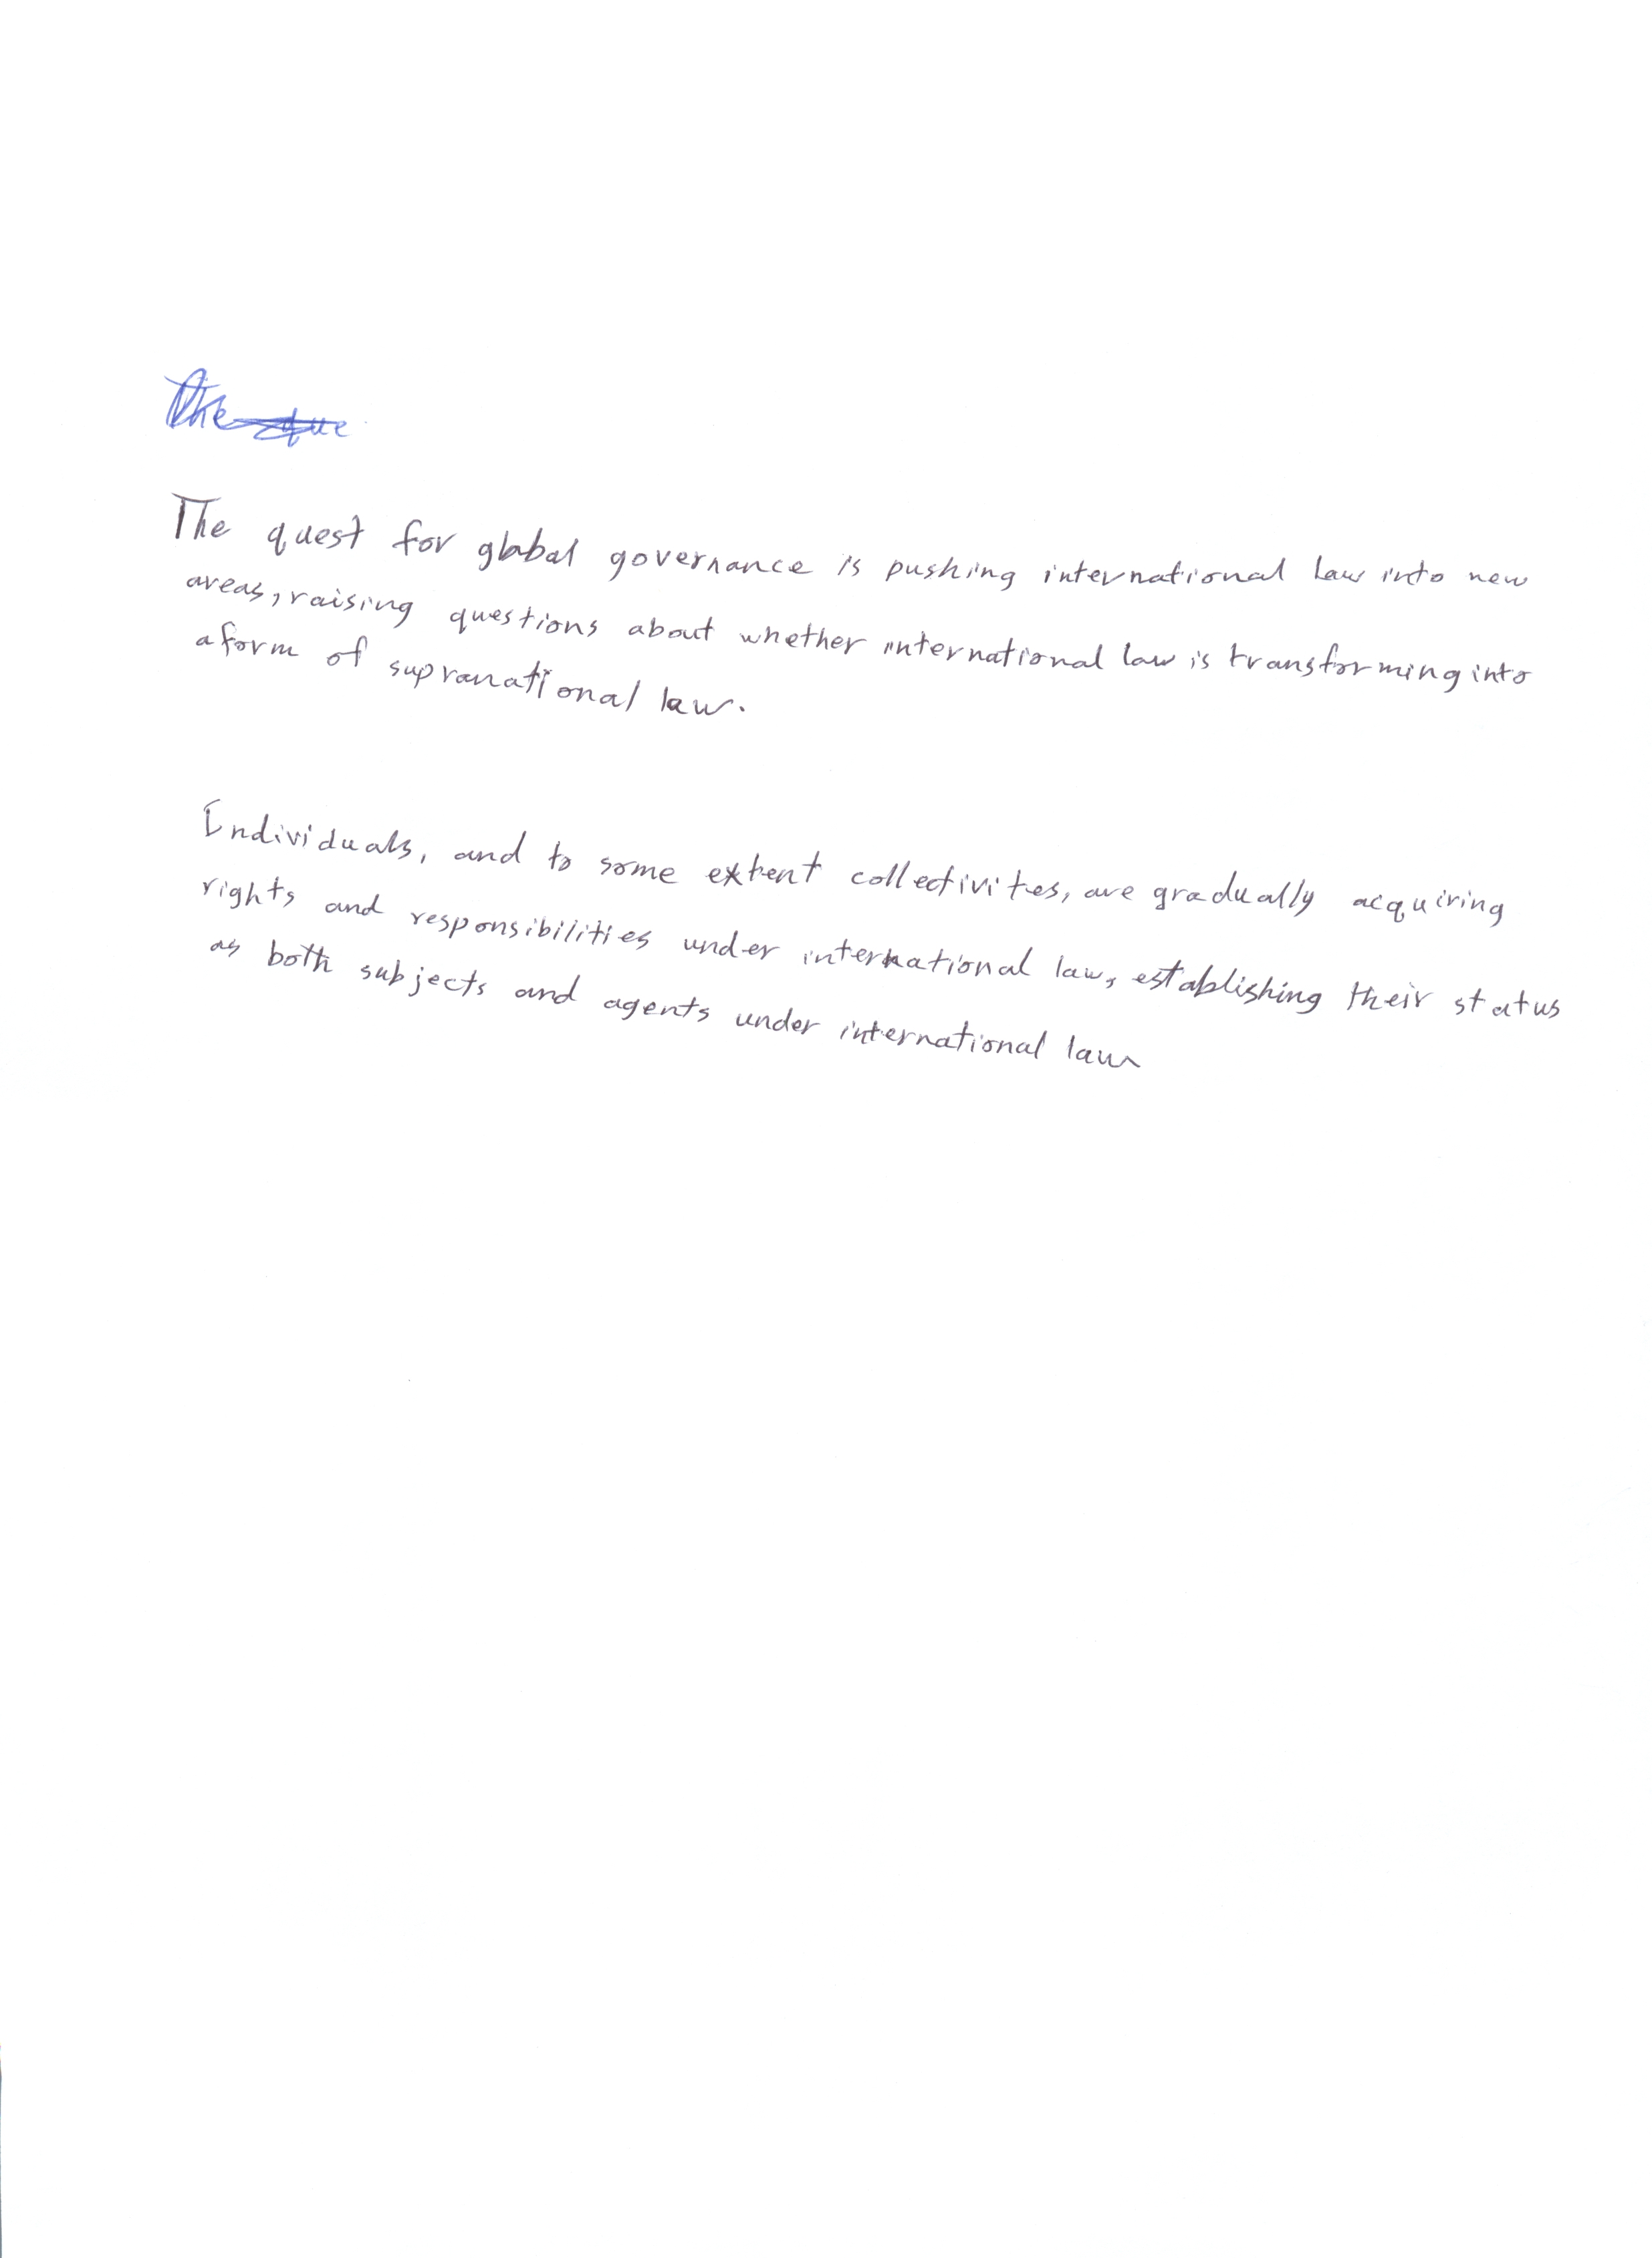 The que
The quest for global governance is pushing international law into new
areas, raising questions about whether international law is transforming into
a form of supranational law.
Individuals, and to some extent collectivities, are gradually acquiring
rights and responsibilities under international law, establishing their status
as both subjects and agents under international law